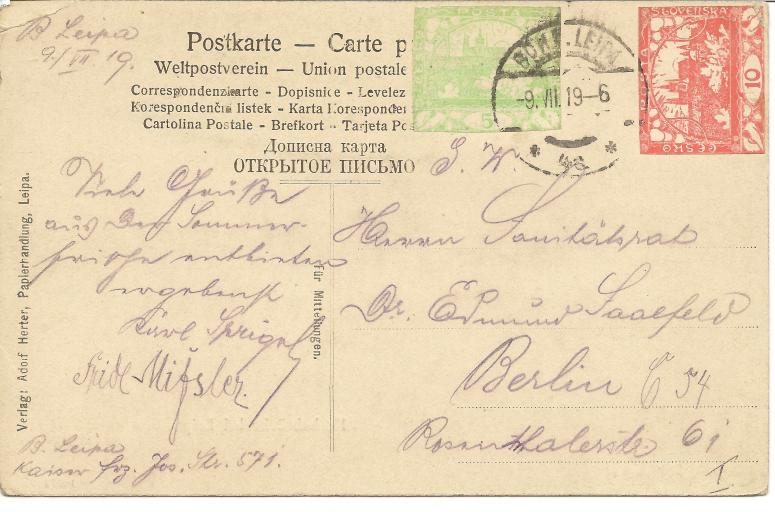 B. Leipa
9/VII 19.
Postkarte — Carte p
Weltpostverein — Union postale
Correspondenzkarte - Dopisnice - Levelez
Korespondenční lístek - Karta Korespondenc
Cartolina Postale - Brefkort - Tarjeta Pos
Дописна карта
ОТКРЫТОЕ ПИСЬМО
POŠTA
5
BÖHM. LEIPA
-9. VII. 19-6
* *
SLOVENSKÁ
10
ČESKO
Viele Grüße
aus der Sommer-
frische entbieten
ergebenst
Karl Sprigel
Fridl Mitzler.
B. Leipa
Kaiser Frz. Jos. Str. 571.
S. H.
Herrn Sanitätsrat
Dr. Edmund Saalfeld
Berlin C 54
Rosenthalerstr 61
I
für Mitteilungen.
Verlag: Adolf Herter, Papierhandlung, Leipa.